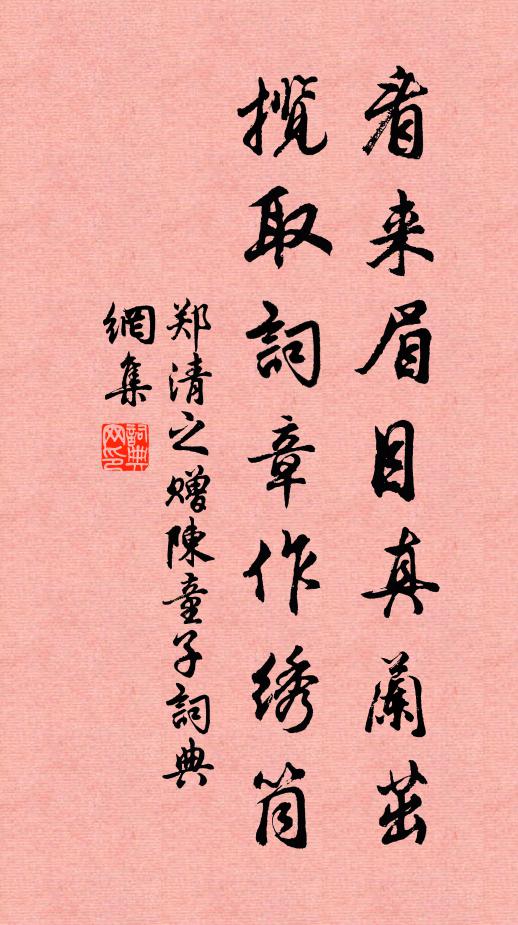 看来眉目真兰茁
揽取词章作绣筒
郑清之赠陈童子词典
网集
词典网印